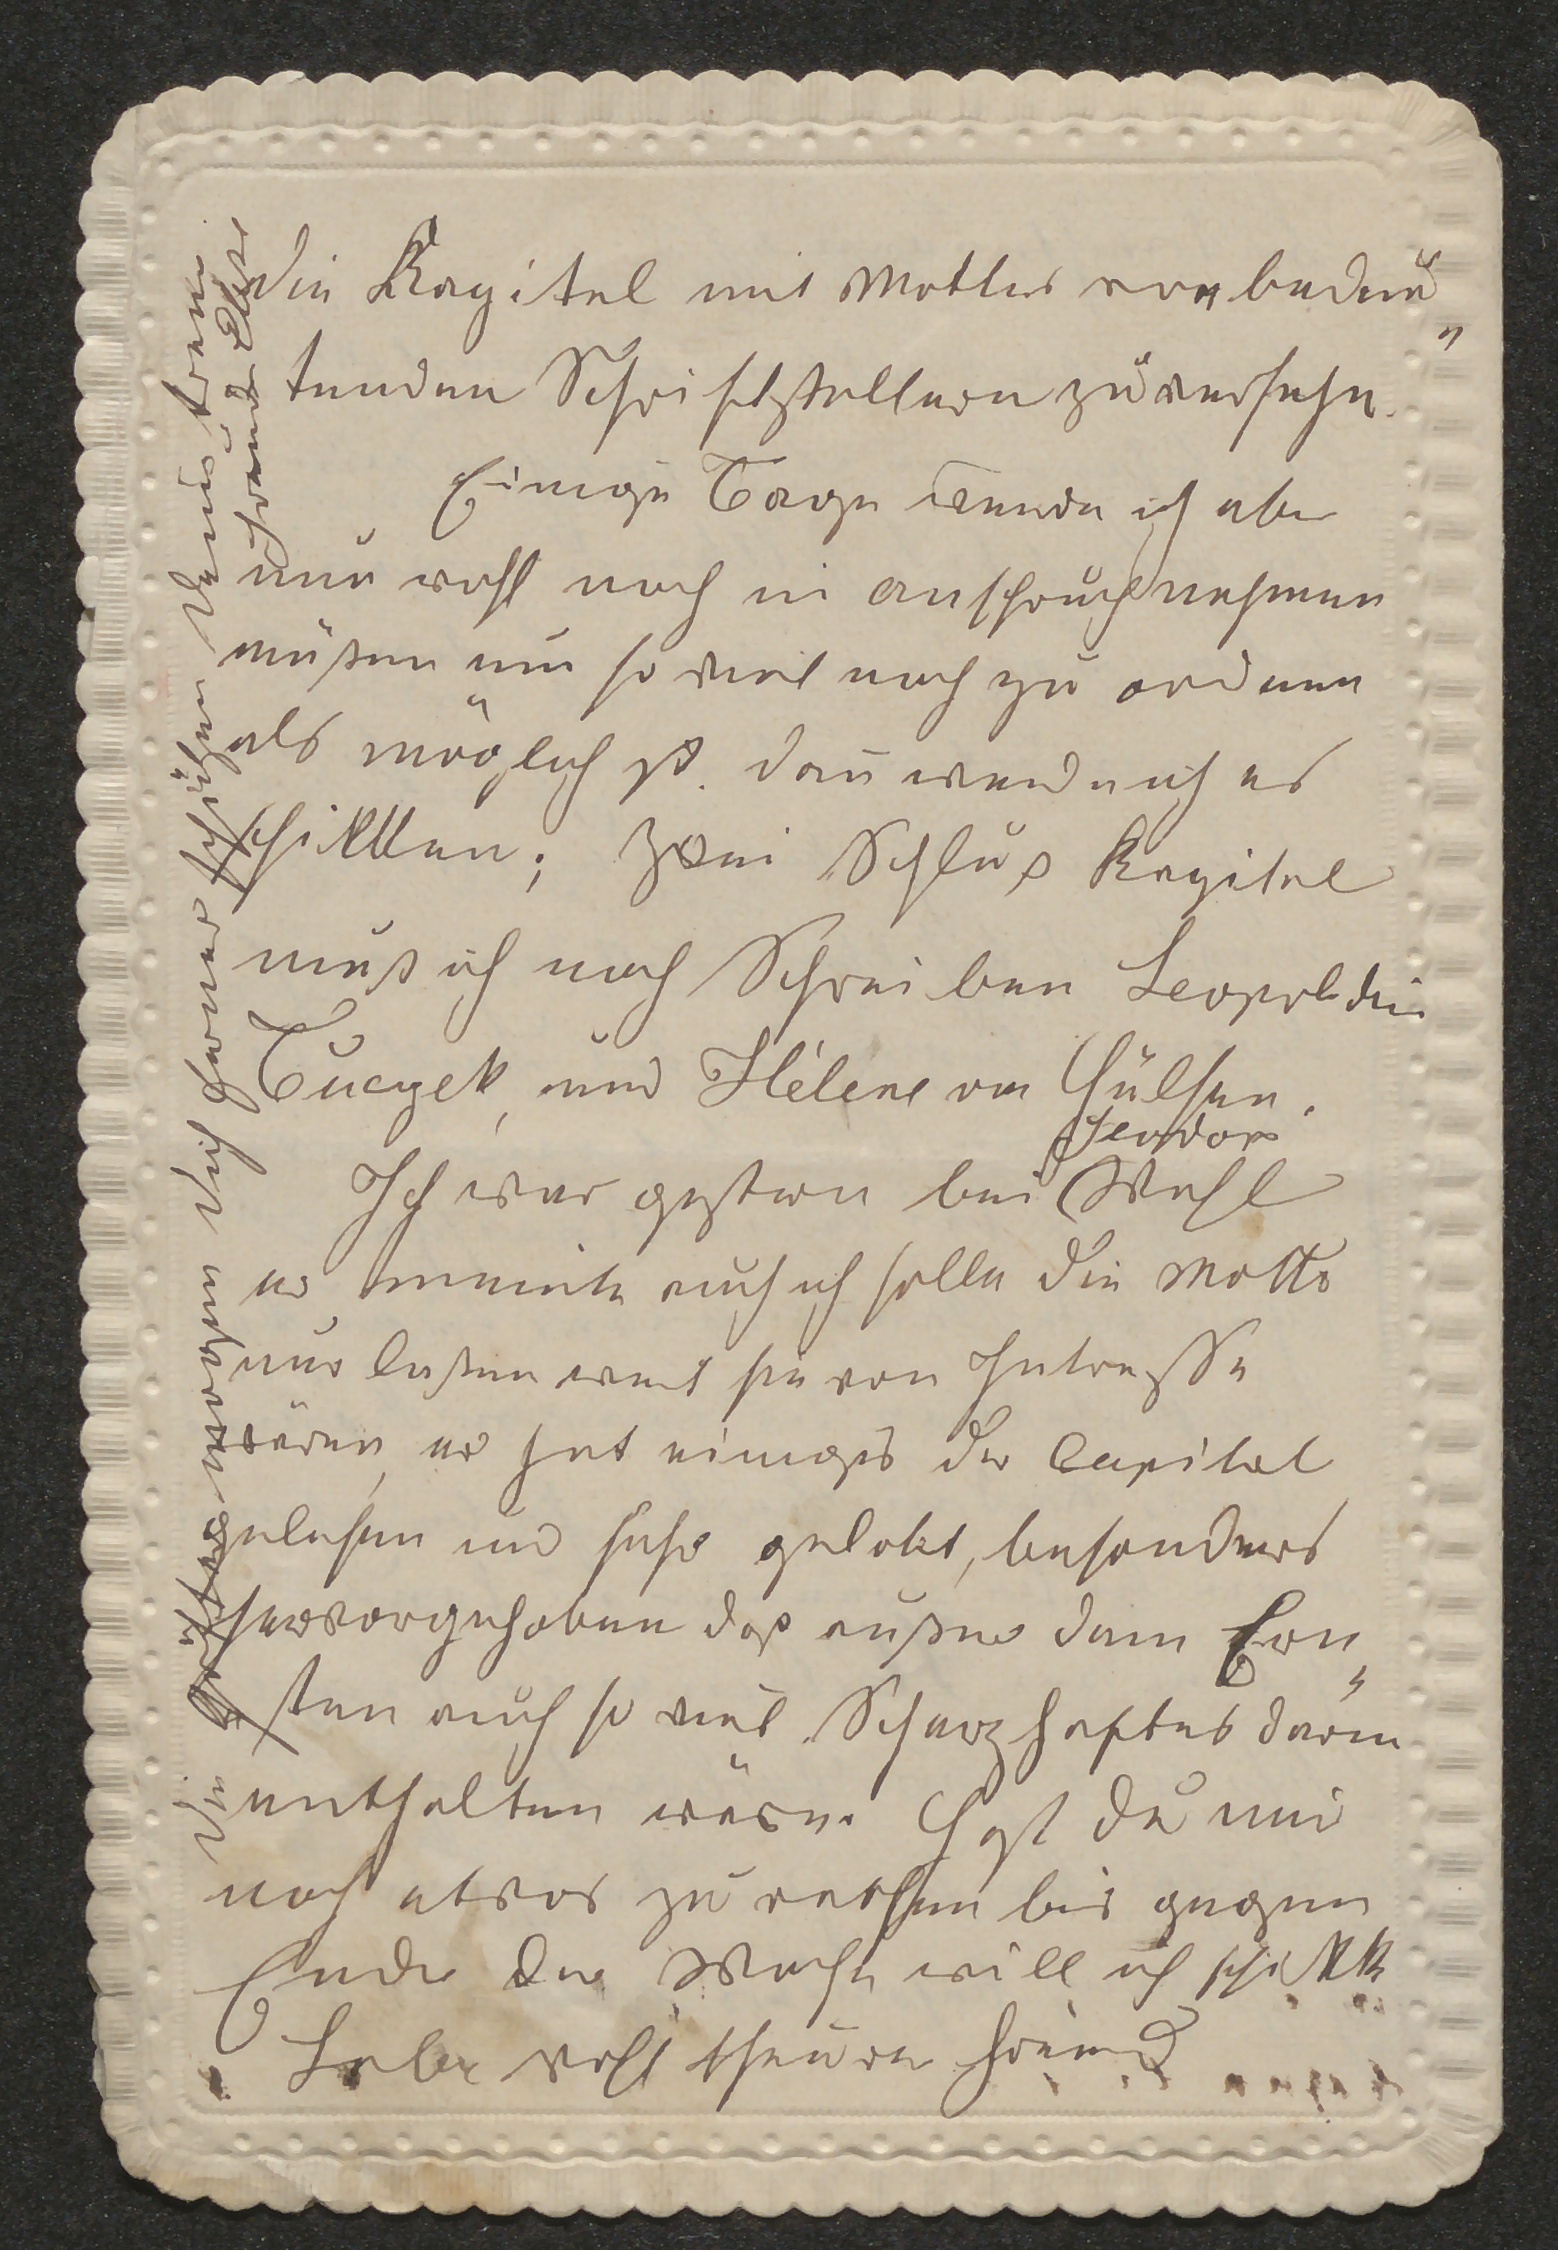 die Kapitel mit Mottos von bedeu„
tenden Schriftstellern zu versehn.
Einige Tage werde ich aber
nun wohl noch in anspruch nehmen
müßen um so viel noch zu ordnen
als möglich ist. dan werde ich es
schikken; zwei Schluß Kapitel
muß ich noch Schreiben Leopoldin
Tuczek, und Hélene von Hülsen.
Ich war gestern bei Feodor Wehl
er meinte auch ich solle die Motto
nur laßen weil sie von Intresse
wären, er hat einiges der Capitel
gelesen und sehr gelobt, besonders
hervorgehoben daß außer dem Ern„
sten auch so viel Scherzhaftes darin
enthalten wäre. Hast du mir
noch etwas zu rathen bis gegen
Ende der Woche will ich schikk
Lebe wohl theurer Freund
Die Götter mögen dich ferner schützen deine treue
Freundin Elise